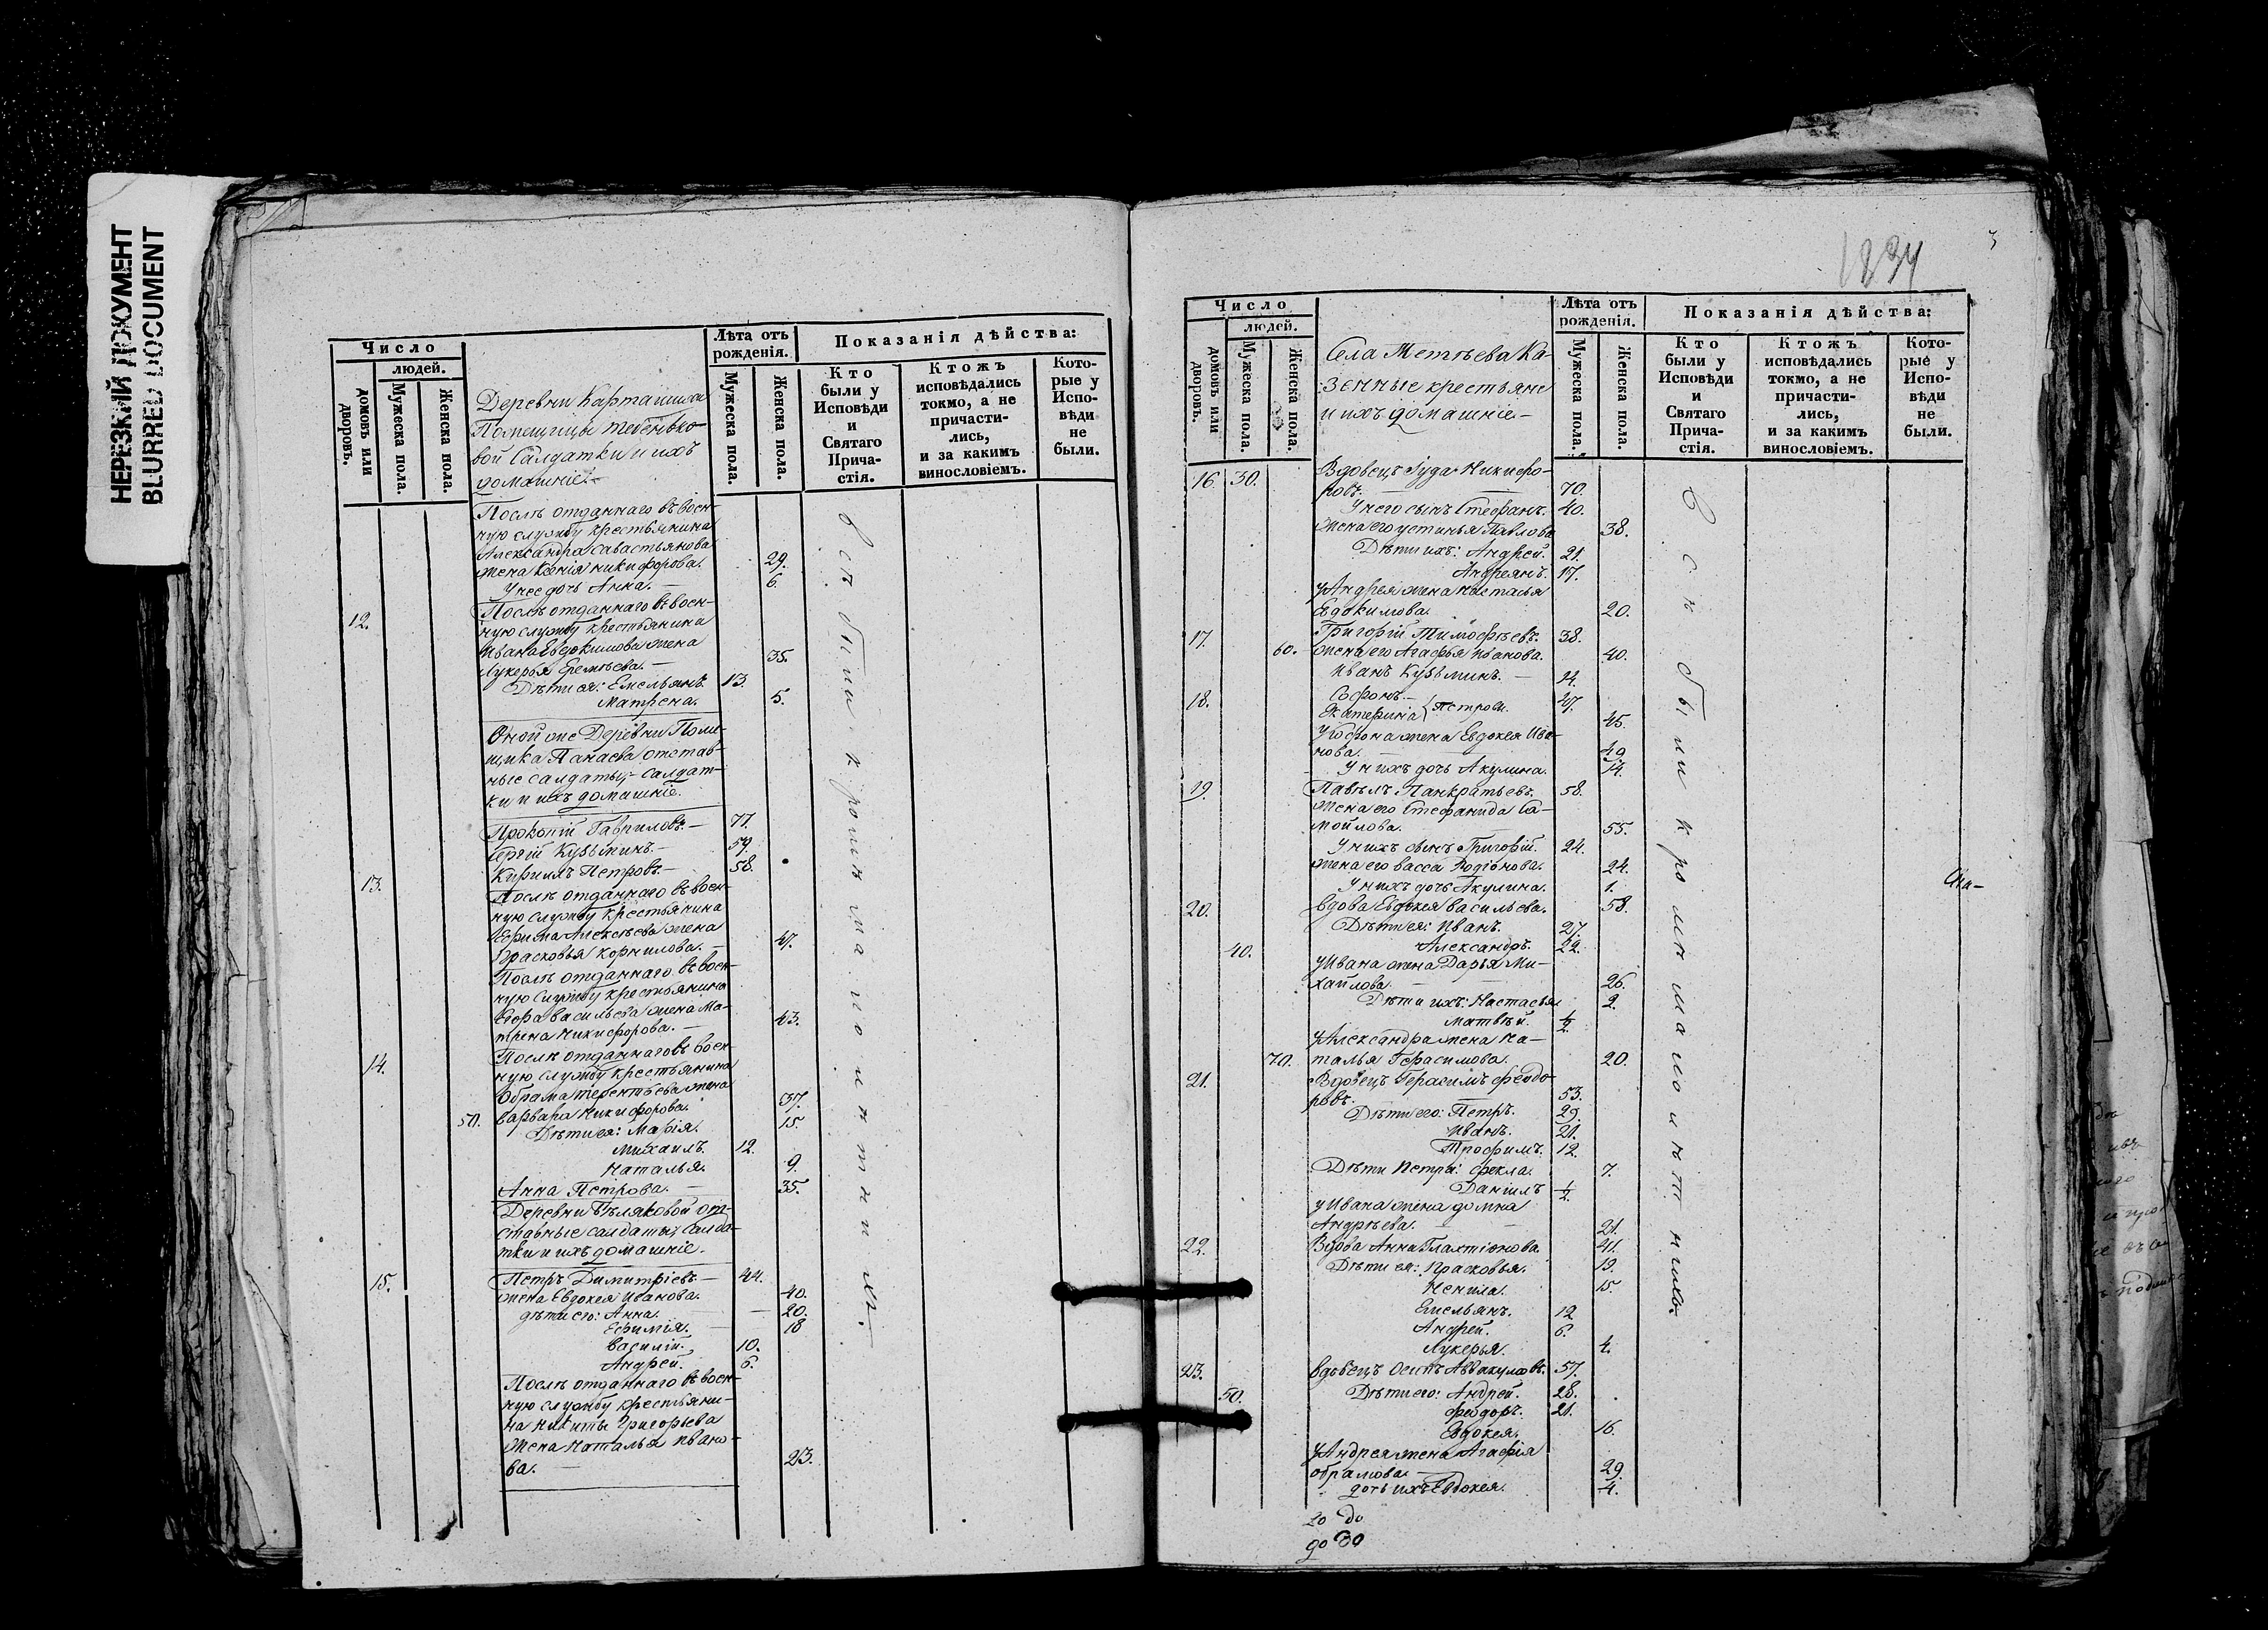 НЕРЕЗКИЙ ДОКУМЕНТ
BLURRED DOCUMENT
Число
людей.
домовъ или дворовъ.
Мужеска пола.
Женска пола.
Лѣта отъ рожденія.
Мужеска пола.
Женска пола.
Показанія дѣйства:
Кто были у Исповѣди и Святаго Прича-стія.
Ктожъ исповѣдались токмо, а не причасти-лись, и за какимъ винословіемъ.
Кото-рые у Испо-вѣди не были.
Деревни
Помещицы
вой Салдатки и ихъ
домашніе.
Послѣ отданнаго въ воен-
ную службу крестьянина
Александра Савастьянова
жена Ксенія Никифорова. 29.
У нее дочь Анна. — 6.
12. Послѣ отданнаго въ воен-
ную службу крестьянина
Ивана Евдокимова жена
Лукерья Еремѣева. — 35.
Дѣти ея: Емельянъ. 13.
Матрена. 5.
Оной же Деревни Поме-
щика Панаева отстав-
ные салдаты, салдат-
ки и ихъ домашніе.
Прокопій Гавриловъ. — 77.
Сергій Кузьминъ. — 59.
Кирилъ Петровъ. — 58.
13. Послѣ отданнаго въ воен-
ную службу крестьянина
Ефима Алексѣева жена
Прасковья Корнилова. — 47.
Послѣ отданнаго въ воен-
ную службу крестьянина
Егора Васильева жена Ма-
трена Никифорова. — 43.
14. Послѣ отданнаго въ воен-
ную службу крестьянина
Обрама Терентьева жена
50. Варвара Никифорова. 37.
Дѣти ея: Марія. 15.
Михаилъ. 12.
Наталья. 9.
Анна Петрова. — 35.
Деревни Бѣляковой от-
ставные салдаты, салда-
тки и ихъ домашніе.
15. Петръ Димитріевъ. — 44.
жена Евдокея Иванова. 40.
дѣти его: Анна. — 20.
Ефимія. — 18
Василій. 10.
Андрей. 6.
Послѣ отданнаго въ воен-
ную службу крестьяни-
на Никиты Григорьева
жена Наталья Ивано-
ва. — 23.
всѣ были кромѣ малолѣтнихъ
1834
3
Число
людей.
домовъ или дворовъ.
Мужеска пола.
Женска пола.
Лѣта отъ рожденія.
Мужеска пола.
Женска пола.
Показанія дѣйства:
Кто были у Исповѣди и Святаго Прича-стія.
Ктожъ исповѣдались токмо, а не причасти-лись, и за какимъ винословіемъ.
Кото-рые у Испо-вѣди не были.
Села Метѣева Ка-
зенные крестьяне
и ихъ домашніе —
16. 30. Вдовецъ Іуда Никифо-
ровъ. 70.
У него сынъ Стефанъ. 40.
жена его Устинья Павлова 38.
Дѣти ихъ: Андрей. 21.
Андреянъ. 17.
У Андрея жена Настасья
Евдокимова. 20.
17. Григорій Тимофѣевъ. 38.
60. жена его Агафья Иванова. 40.
Иванъ Кузьминъ. —
18. Софонъ. — 47.
Екатерина Петровы. 45.
У Софона жена Евдокея Ива-
нова. 49.
У нихъ дочь Акулина. 14.
19. Павелъ Панкратьевъ. 58.
жена его Стефанида Са-
мойлова. 55.
У нихъ сынъ Григорій. 24.
жена его Васса Родіонова. 24.
У нихъ дочь Акулина. 1.
20. Вдова Евдокея Васильева. 58.
Дѣти ея: Иванъ. 27.
40. Александръ. 22.
У Ивана жена Дарья Ми-
хайлова. 26.
Дѣти ихъ: Настасья 2.
Матвѣй. 1/2.
У Александра жена На-
70. талья Герасимова. 20.
21. Вдовецъ Герасимъ Феодо-
ровъ. 53.
Дѣти его: Петръ. 29.
Иванъ. 21.
Трофимъ. 12.
Дѣти Петра: Фекла. 7.
Даніилъ 1/2.
У Ивана жена Домна
Андрѣева. 21.
22. Вдова Анна Галахтіонова 41.
Дѣти ея: Прасковья. 19.
Ненила. 15.
Емельянъ. 12
Андрей. 6.
Лукерья. 4.
23. Вдовецъ Осипъ Аввакумовъ. 57.
50. Дѣти его: Андрей. 28.
Феодоръ. 21.
Евдокея. 16.
У Андрея жена Агафія
Обрамова. — 29.
дочь ихъ Евдокея. 4.
всѣ были кромѣ малолѣтнихъ.
20 до
до 30